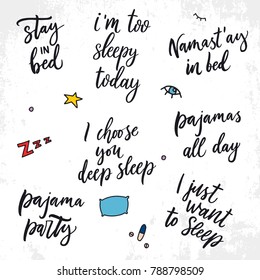 stay
in
bed
i'm too
sleepy
today
Namast'ay
in bed
zzz
I choose
you
deep sleep
pajamas
all day
pajama
party
I just
want
to sleep
shutterstock.com · 788798509